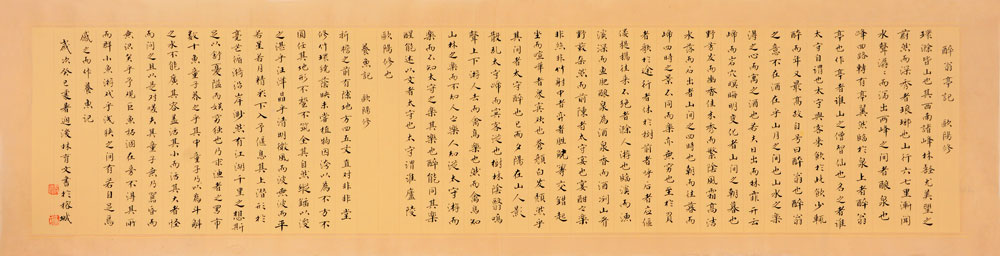 醉翁亭記 歐陽修
環滁皆山也其西南諸峰林壑尤美望之
蔚然而深秀者琅琊也山行六七里漸聞
水聲潺潺而瀉出兩峰之間者釀泉也
峰回路轉有亭翼然臨於泉上者醉翁
亭也作亭者誰山之僧智仙也名之者誰
太守自謂也太守與客來飲於此飲少輒
醉而年又最高故自號曰醉翁也醉翁
之意不在酒在乎山水之間也山水之樂
得之心而寓之酒也若夫日出而林霏開云
歸而岩穴暝晦明變化者山間之朝暮也
野芳發而幽香佳木秀而繁陰風霜高潔
水落而石出者山間之四時也朝而往暮而
歸四時之景不同而樂亦無窮也至於負
者歌於途行者休於樹前者呼后者應傴
僂提攜往來不絕者滁人游也臨溪而漁
溪深而魚肥釀泉為酒泉香而酒洌山肴
野蔌雜然而前陳者太守宴也宴酣之樂
非絲非竹射者中弈者勝觥籌交錯起
坐而喧嘩者眾賓歡也蒼顏白发頹然乎
其間者太守醉也已而夕陽在山人影
散亂太守歸而賓客從也樹林陰翳鳴
聲上下游人去而禽鳥樂也然而禽鳥知
山林之樂而不知人之樂人知從太守游而
樂而不知太守之樂其樂也醉能同其樂
醒能述以文者太守也太守謂誰廬陵
歐陽修也
養魚記 歐陽修
折檐之前有隙地方四五丈直對非非堂
修竹環繞蔭映未嘗植物因洿以為方不
圓任其地形不甃不筑全其自然縱鍤以浚
之湛乎汪洋晶乎清明微風而波無波而平
若星若月精彩下入予偃息其上潛形於
毫芒循漪沿岸渺然有江湖千里之想斯
足以舒憂隘而娛窮獨也乃求漁者之罟市
數十魚童子養之乎其中童子以為斗斛
之水不能廣其容蓋活其小而其大者怪
而問之且以是對嗟乎其童子無乃嚚昏而
無識矣乎予觀巨魚枯涸在旁不得其所
而群小魚游戲乎淺狹之間有若自足焉
感之而作養魚記
歲次癸巳 林育文書於榕城